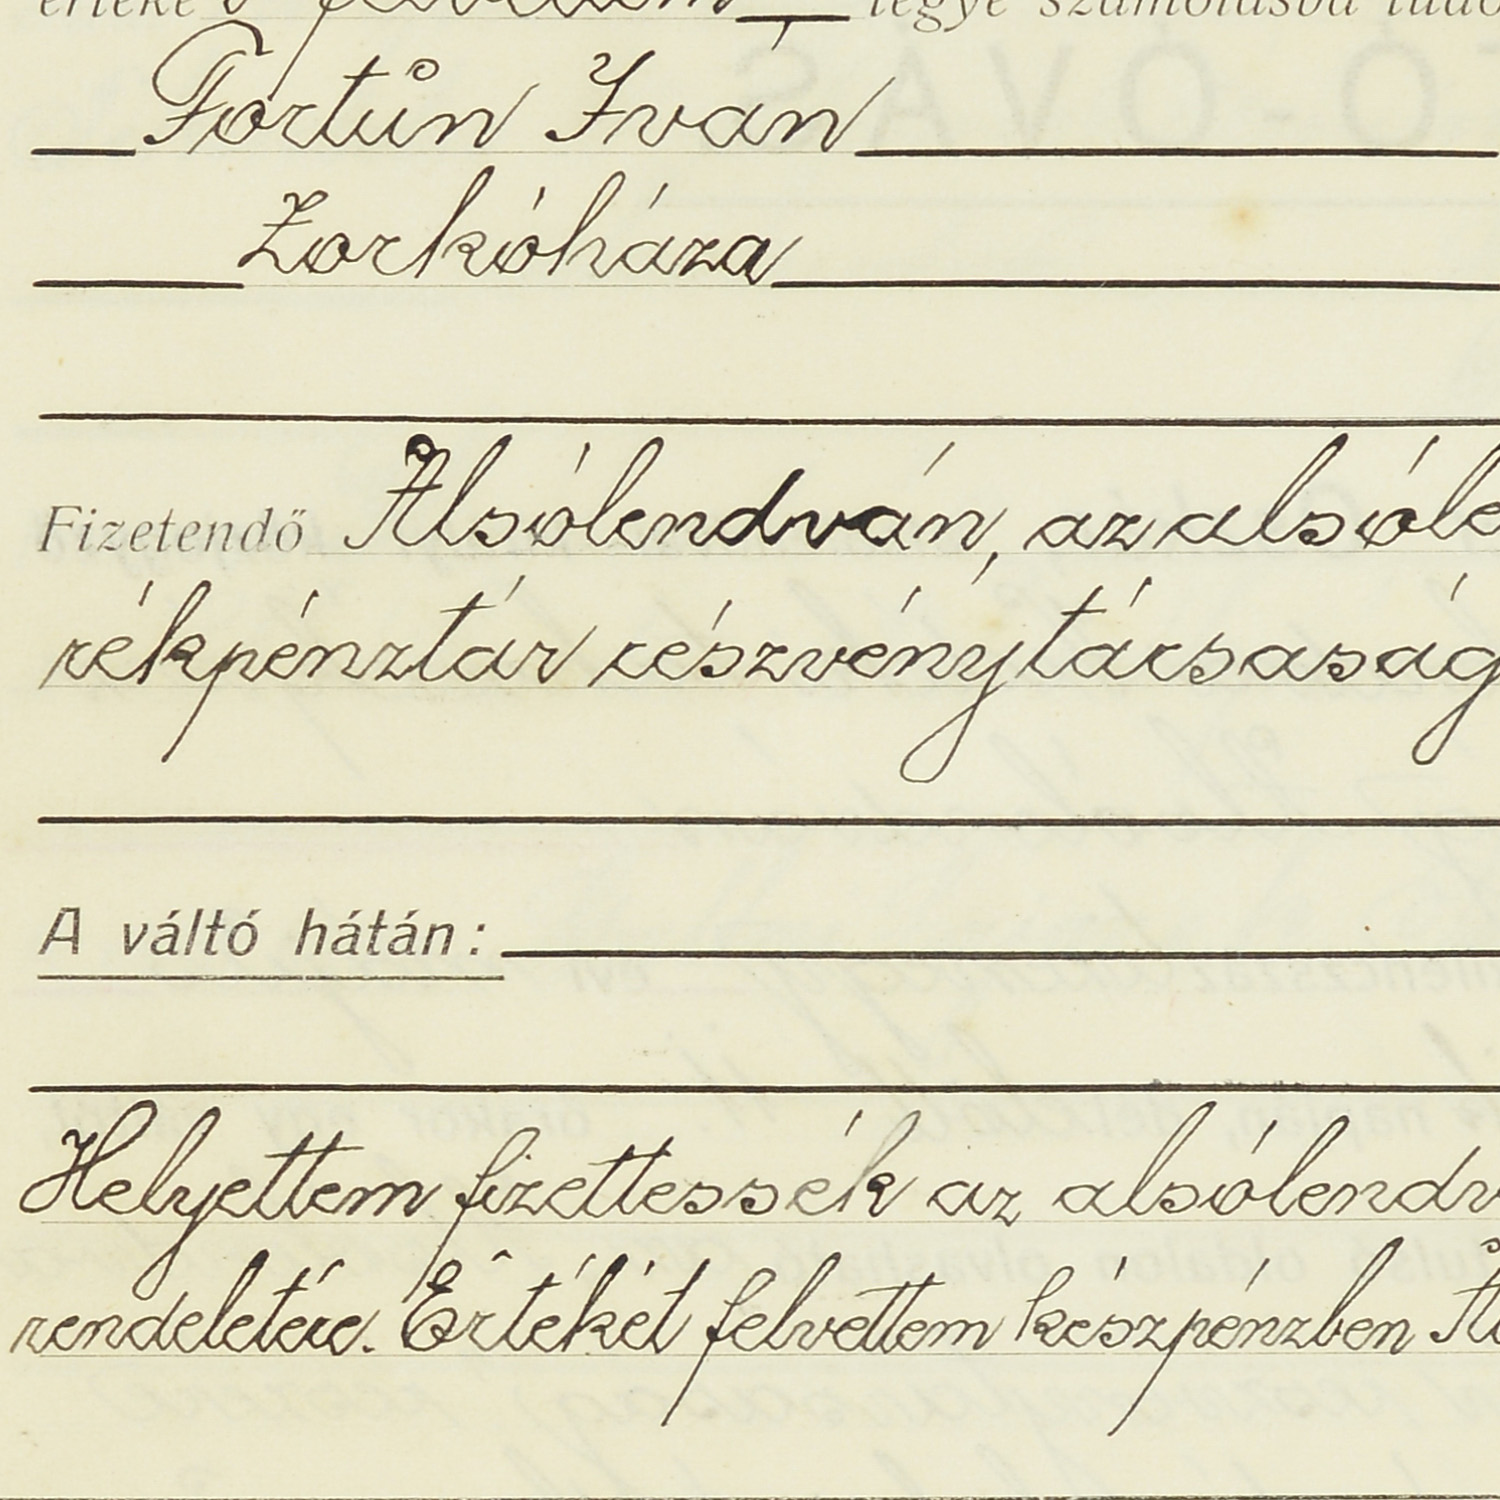 értéke felvettem legye számolásba tudó
Fortun Iván
Zorkóháza
Fizetendő Alsólendván, az alsóle
rékpénztár részvénytársaság
A váltó hátán:
Helyettem fizettessék az alsólendv
rendelete. Értékét felvettem készpénzben Al